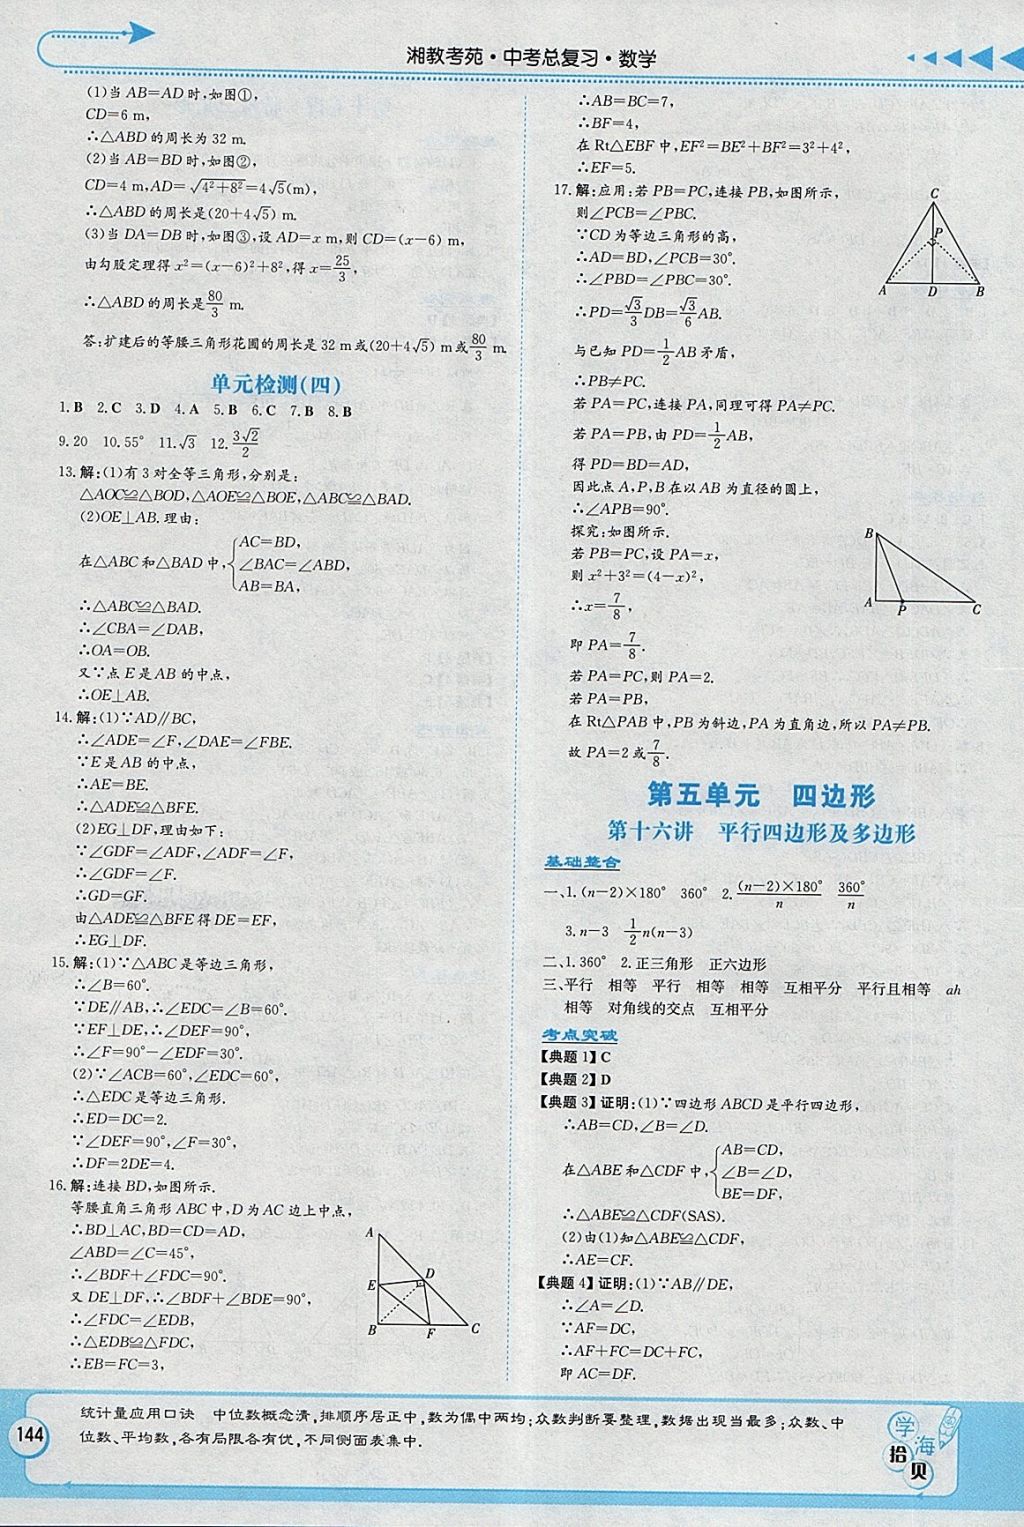 湘教考苑·中考总复习·数学
(1)当 AB=AD 时,如图①,
CD=6 m,
∴△ABD 的周长为 32 m.
(2)当 AB=BD 时,如图②,
CD=4 m,AD=√(4²+8²)=4√5(m),
∴△ABD 的周长是(20+4√5) m.
(3)当 DA=DB 时,如图③,设 AD=x m,则 CD=(x-6) m,
由勾股定理得 x²=(x-6)²+8²,得 x=25/3,
∴△ABD 的周长是80/3 m.
答:扩建后的等腰三角形花圃的周长是 32 m或(20+4√5) m或80/3 m.
单元检测(四)
1.B 2.C 3.D 4.A 5.B 6.C 7.B 8.B
9.20 10.55° 11.√3 12.3√2/2
13.解:(1)有 3 对全等三角形,分别是:
△AOC≌△BOD,△AOE≌△BOE,△ABC≌△BAD.
(2)OE⊥AB.理由:
在△ABC 和△BAD 中,{AC=BD,
∠BAC=∠ABD,
AB=BA,
∴△ABC≌△BAD.
∴∠CBA=∠DAB,
∴OA=OB.
又∵点 E 是 AB 的中点,
∴OE⊥AB.
14.解:(1)∵AD∥BC,
∴∠ADE=∠F,∠DAE=∠FBE.
∵E 是 AB 的中点,
∴AE=BE.
∴△ADE≌△BFE.
(2)EG⊥DF,理由如下:
∵∠GDF=∠ADF,∠ADF=∠F,
∴∠GDF=∠F.
∴GD=GF.
由△ADE≌△BFE 得 DE=EF,
∴EG⊥DF.
15.解:(1)∵△ABC 是等边三角形,
∴∠B=60°.
∵DE∥AB,∴∠EDC=∠B=60°.
∵EF⊥DE,∴∠DEF=90°,
∴∠F=90°-∠EDF=30°.
(2)∵∠ACB=60°,∠EDC=60°,
∴△EDC 是等边三角形.
∴ED=DC=2.
∵∠DEF=90°,∠F=30°,
∴DF=2DE=4.
16.解:连接 BD,如图所示.
等腰直角三角形 ABC 中,D 为 AC 边上中点,
∴BD⊥AC,BD=CD=AD,
∠ABD=∠C=45°,
∴∠BDF+∠FDC=90°.
又 DE⊥DF,∴∠BDF+∠BDE=90°,
∴∠FDC=∠EDB,
∴△EDB≌△FDC,
∴EB=FC=3,
A
E
D
B
F
C
∴AB=BC=7,
∴BF=4,
在 Rt△EBF 中,EF²=BE²+BF²=3²+4²,
∴EF=5.
17.解:应用:若 PB=PC,连接 PB,如图所示,
则∠PCB=∠PBC.
∵CD 为等边三角形的高,
∴AD=BD,∠PCB=30°.
∴∠PBD=∠PBC=30°.
∴PD=√3/3DB=√3/6AB.
与已知 PD=1/2AB 矛盾,
∴PB≠PC.
若 PA=PC,连接 PA,同理可得 PA≠PC.
若 PA=PB,由 PD=1/2AB,
得 PD=BD=AD,
因此点 A,P,B 在以 AB 为直径的圆上,
∴∠APB=90°.
探究:如图所示.
若 PB=PC,设 PA=x,
则 x²+3²=(4-x)²,
∴x=7/8,
即 PA=7/8.
若 PA=PC,则 PA=2.
若 PA=PB,
在 Rt△PAB 中,PB 为斜边,PA 为直角边,所以 PA≠PB.
故 PA=2 或7/8.
C
P
A
D
B
B
A
P
C
第五单元 四边形
第十六讲 平行四边形及多边形
基础整合
一、1.(n-2)×180° 360° 2.(n-2)×180°/n 360°/n
3.n-3 1/2n(n-3)
二、1.360° 2.正三角形 正六边形
三、平行 相等 平行 相等 相等 互相平分 平行且相等 ah
相等 对角线的交点 互相平分
考点突破
【典题 1】C
【典题 2】D
【典题 3】证明:(1)∵四边形 ABCD 是平行四边形,
∴AB=CD,∠B=∠D.
在△ABE 和△CDF 中,{AB=CD,
∠B=∠D,
BE=DF,
∴△ABE≌△CDF(SAS).
(2)由(1)知△ABE≌△CDF,
∴AE=CF.
【典题 4】证明:(1)∵AB∥DE,
∴∠A=∠D.
∵AF=DC,
∴AF+FC=DC+FC,
即 AC=DF.
144
统计量应用口诀 中位数概念清,排顺序居正中,数为偶中两均;众数判断要整理,数据出现当最多;众数、中
位数、平均数,各有局限各有优,不同侧面表集中.
学海拾贝